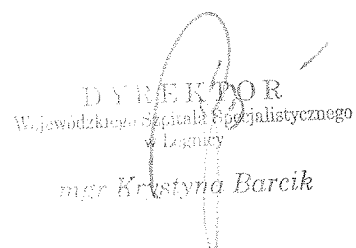 DYREKTOR
Wojewódzkiego Szpitala Specjalistycznego
w Legnicy
mgr Krystyna Barcik